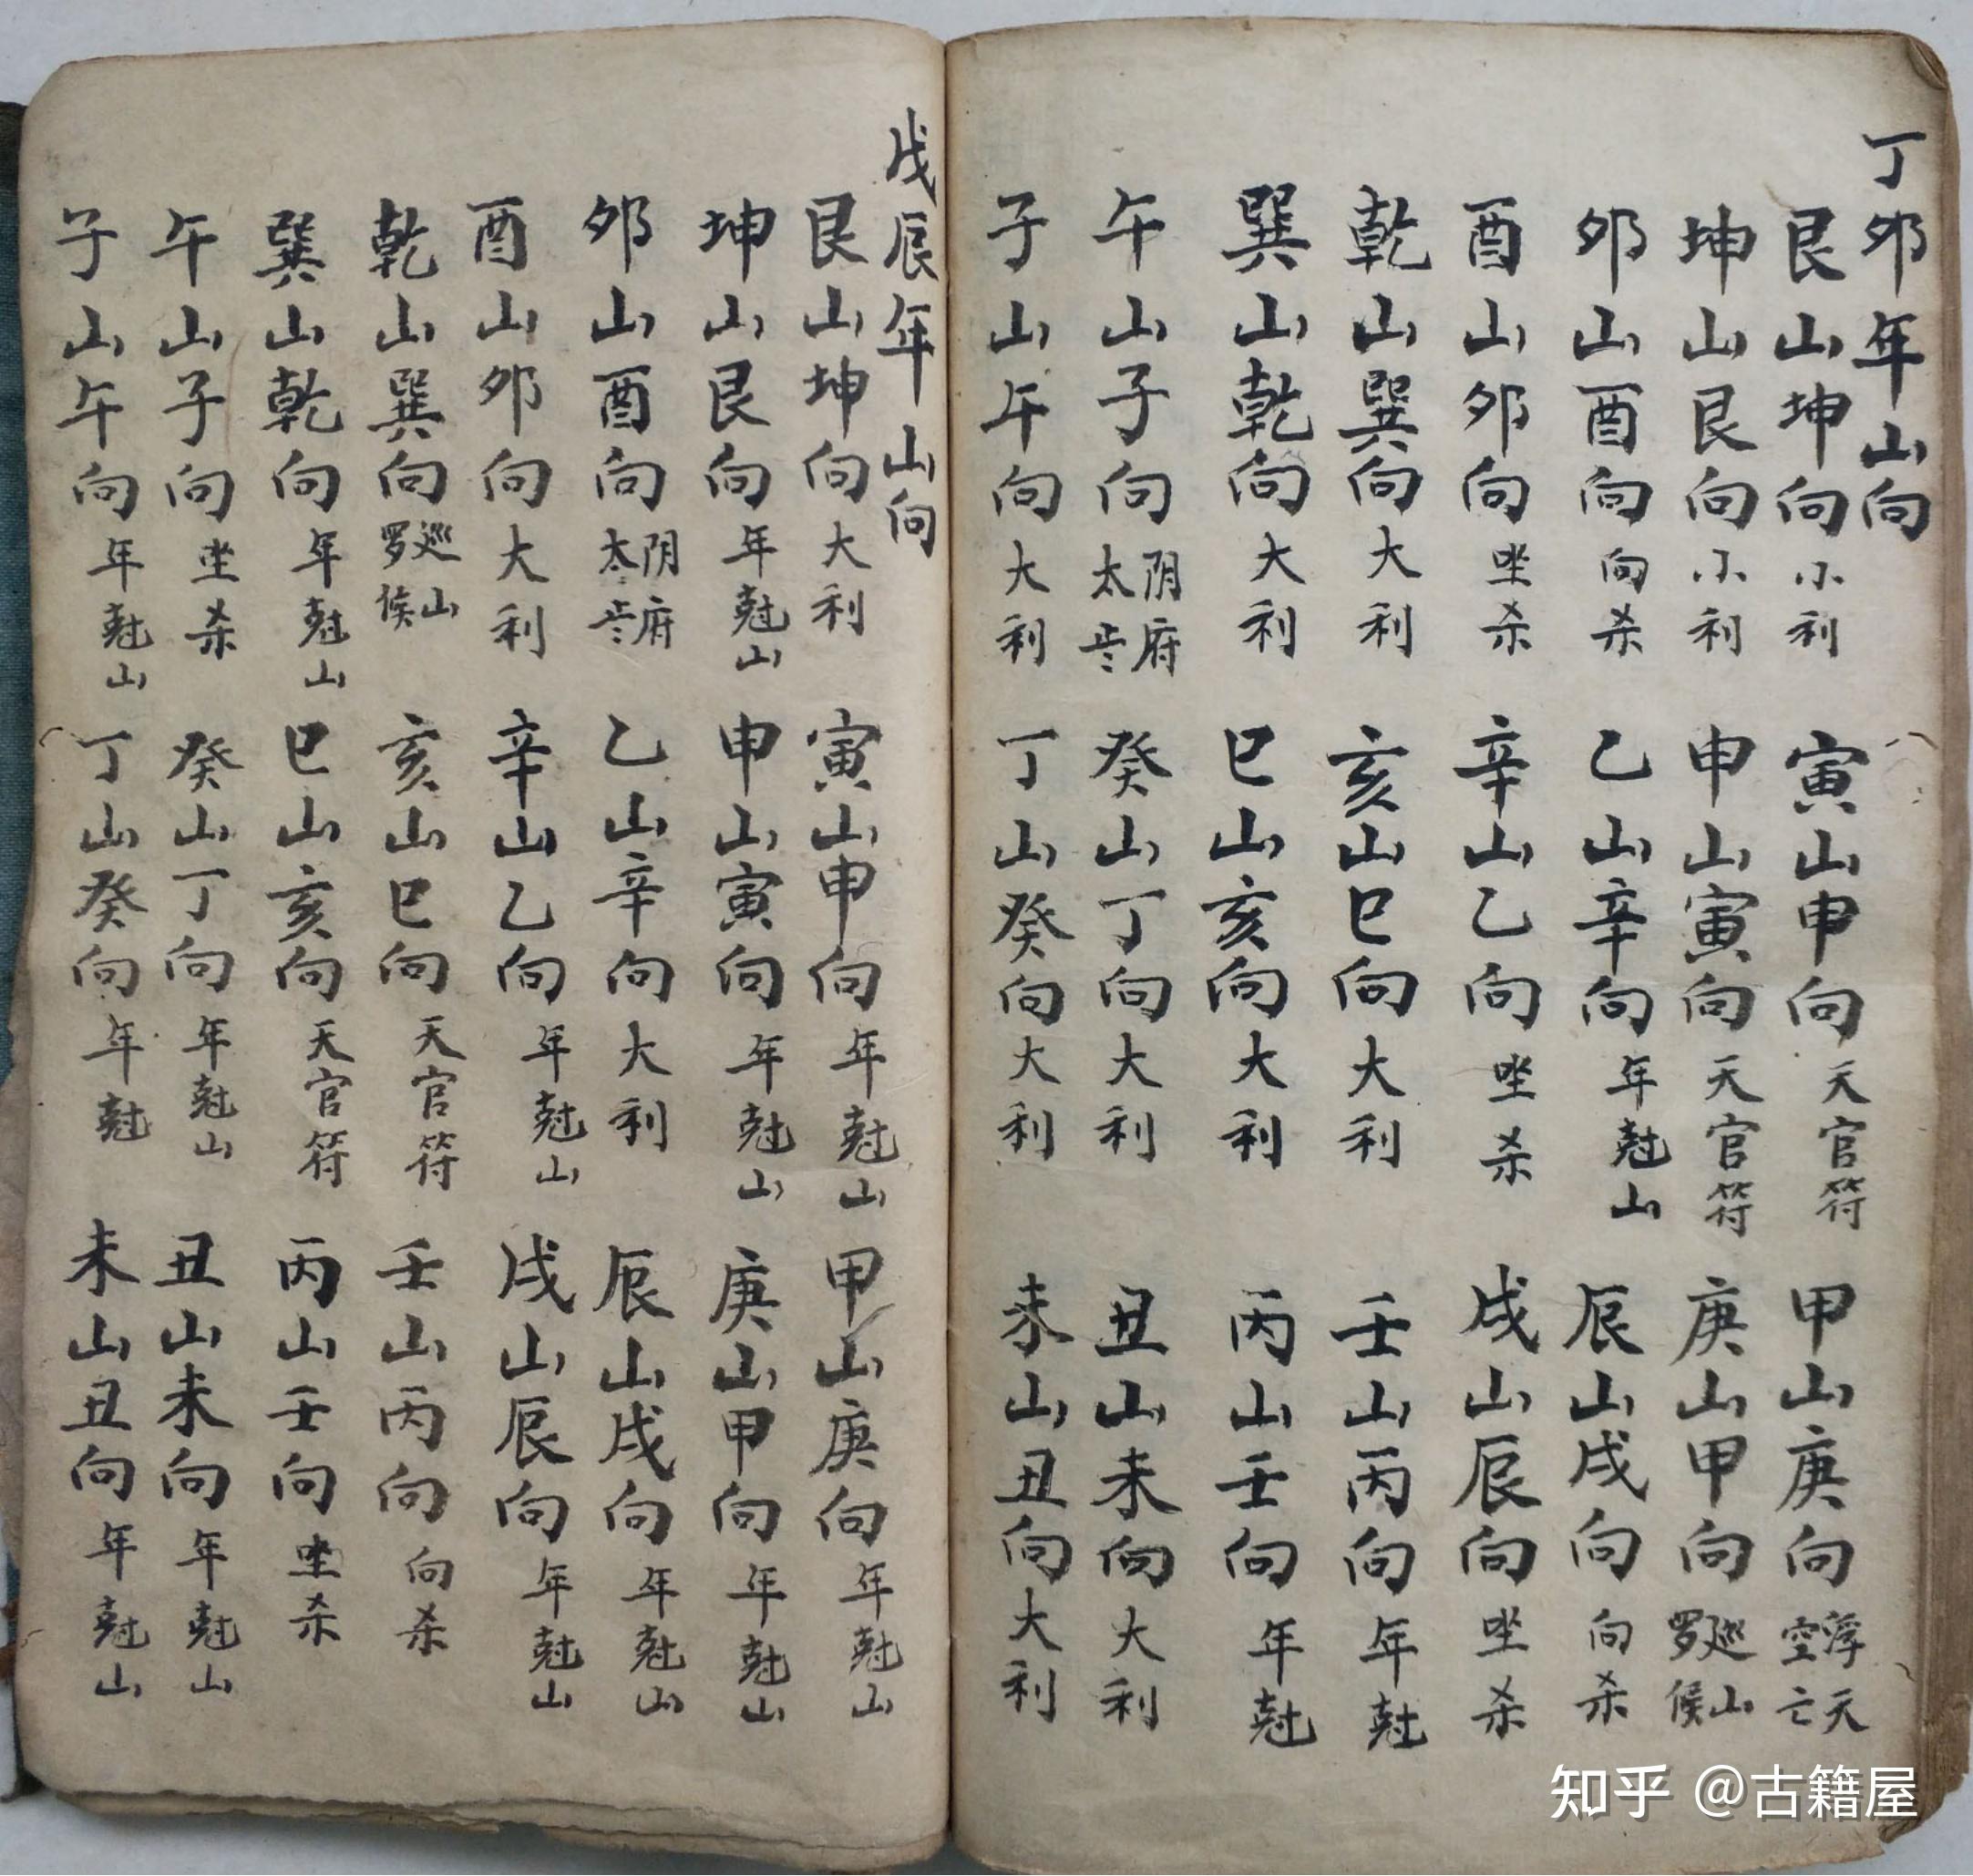 丁卯年山向
艮山坤向小利 寅山申向天官符 甲山庚向浮天空亡
坤山艮向小利 申山寅向天官符 庚山甲向巡山罗候
卯山酉向向杀 乙山辛向年尅山 辰山戌向向杀
酉山卯向坐杀 辛山乙向坐杀 戌山辰向坐杀
乾山巽向大利 亥山巳向大利 壬山丙向年尅
巽山乾向大利 巳山亥向大利 丙山壬向年尅
午山子向阴府太岁 癸山丁向大利 丑山未向大利
子山午向大利 丁山癸向大利 未山丑向大利
戊辰年山向
艮山坤向大利 寅山申向年尅山 甲山庚向年尅山
坤山艮向年尅山 申山寅向年尅山 庚山甲向年尅山
卯山酉向阴府太岁 乙山辛向大利 辰山戌向年尅山
酉山卯向大利 辛山乙向年尅山 戌山辰向年尅山
乾山巽向巡山罗候 亥山巳向天官符 壬山丙向向杀
巽山乾向年尅山 巳山亥向天官符 丙山壬向坐杀
午山子向坐杀 癸山丁向年尅山 丑山未向年尅山
子山午向年尅山 丁山癸向年尅 未山丑向年尅山
知乎 @古籍屋